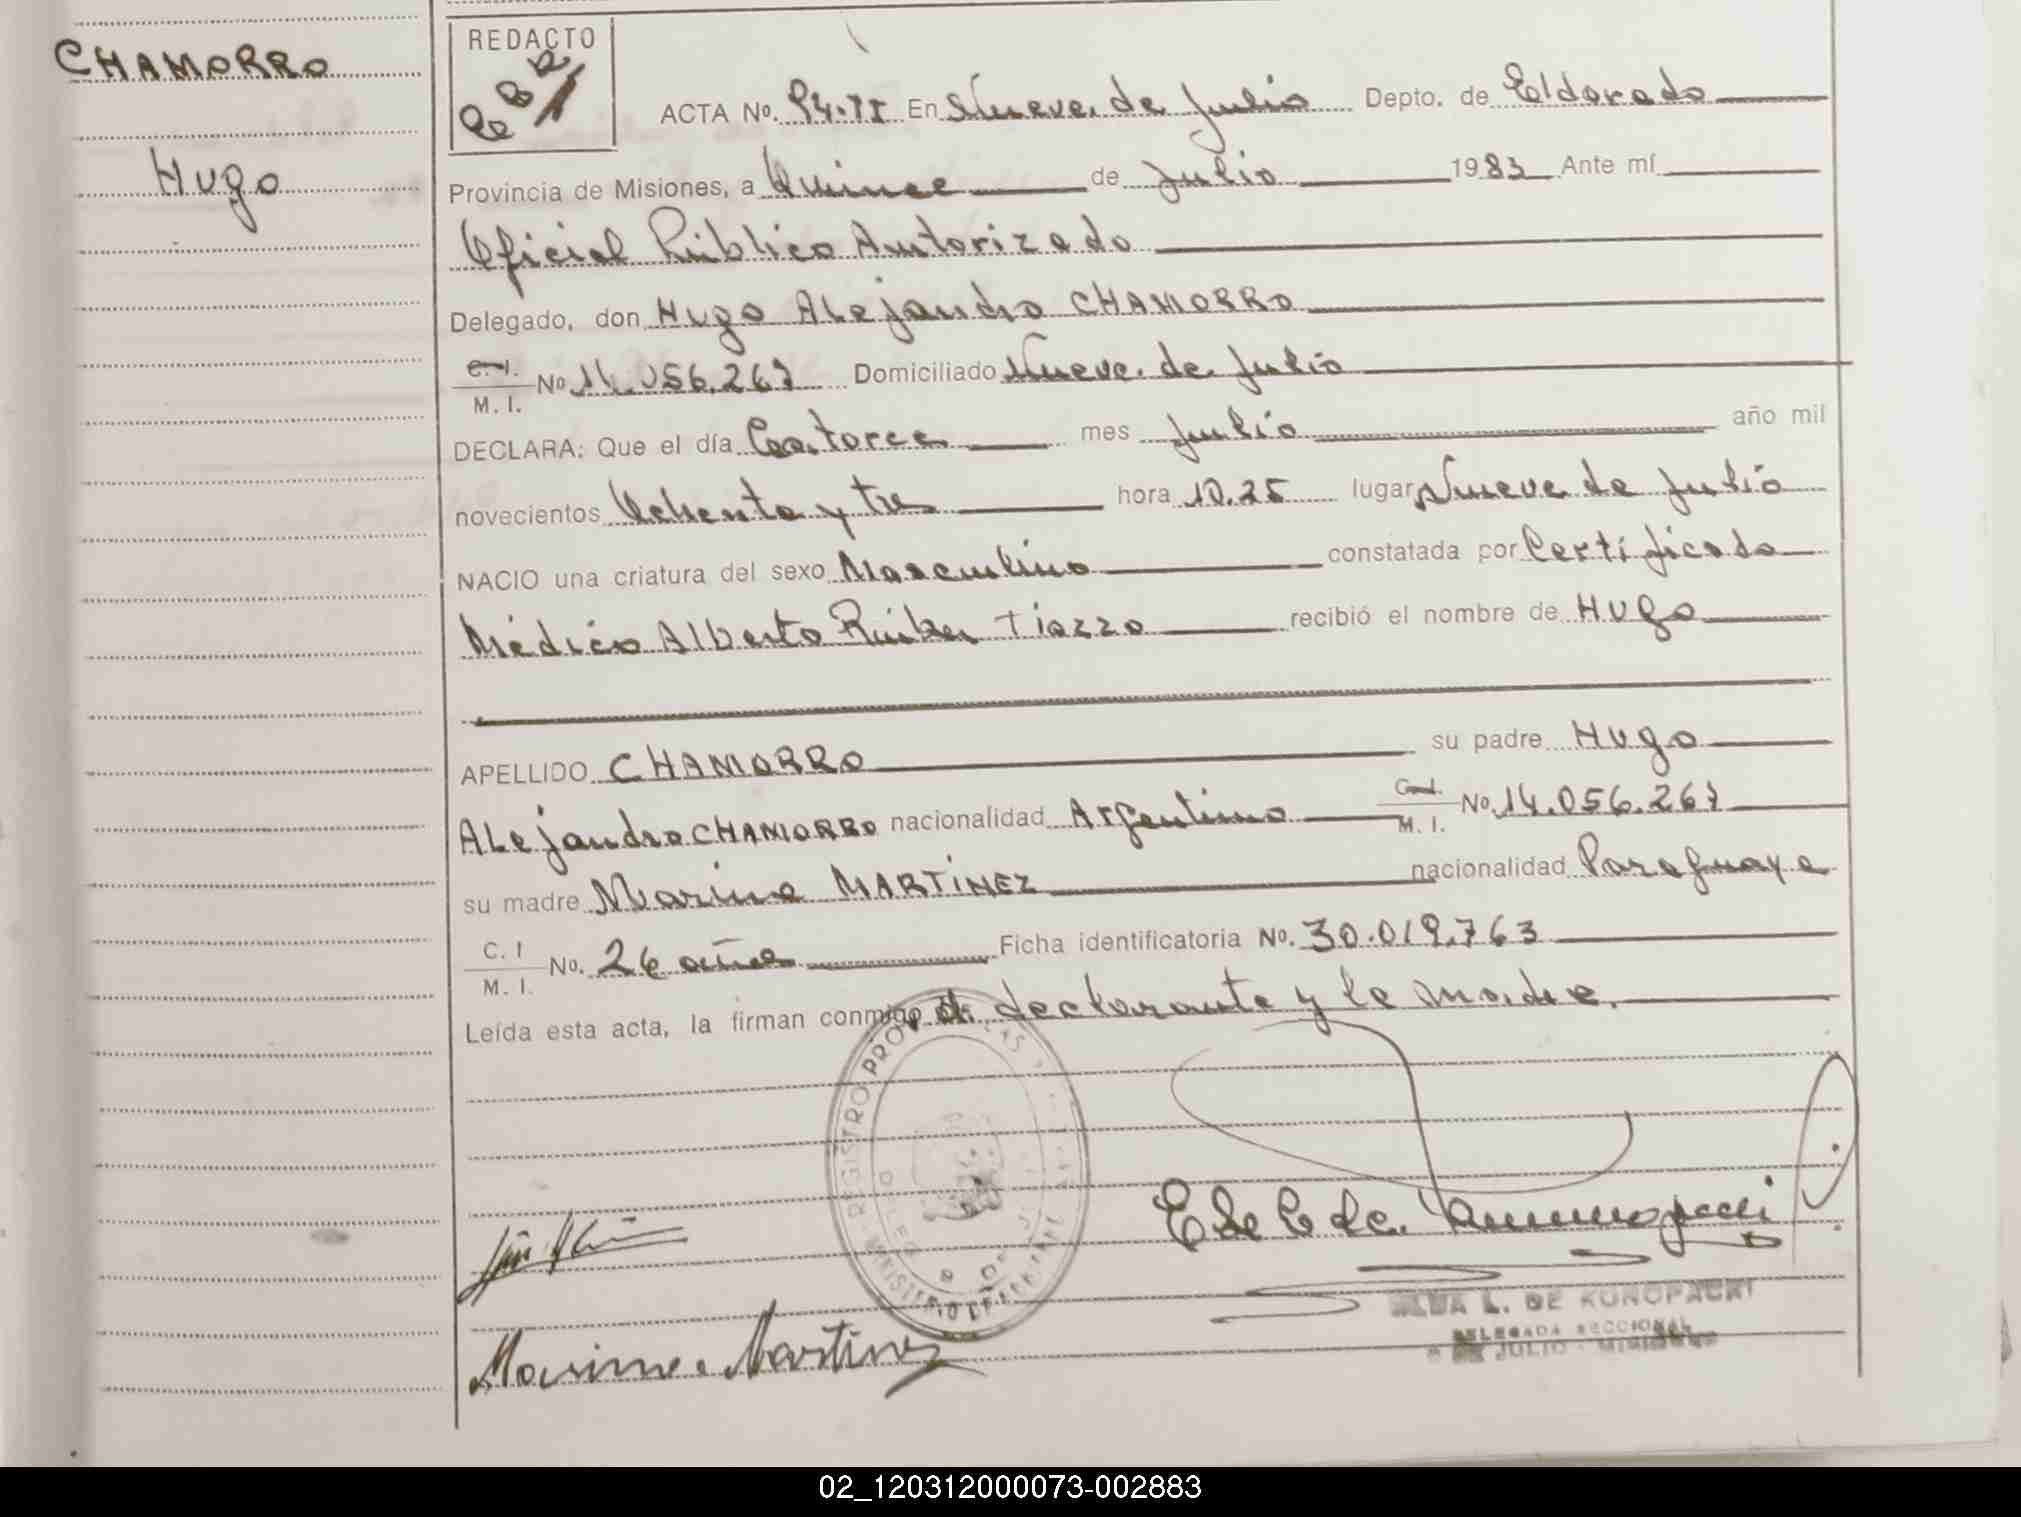 CHAMORRO
Hugo
REDACTO
ACTA No. 94-TI En Nueve de Julio Depto. de Eldorado
Provincia de Misiones, a Quince de Julio 1983 Ante mí
Oficial Público Autorizado
Delegado, don Hugo Alejandro CHAMORRO
C. I.
M. I. No 14.056.267 Domiciliado Nueve de Julio
DECLARA: Que el día Catorce mes Julio año mil
novecientos Ochenta y tres hora 10.25 lugar Nueve de Julio
NACIO una criatura del sexo Masculino constatada por Certificado
Médico Alberto Rúben Tiozzo recibió el nombre de Hugo
APELLIDO CHAMORRO su padre Hugo
Alejandro CHAMORRO nacionalidad Argentino M. I. No. 14.056.267
su madre Marina MARTÍNEZ nacionalidad Paraguaya
C. I
M. I. No. 26 años Ficha identificatoria No. 30.019.763
Leída esta acta, la firman conmigo el declarante y la madre.
REGISTRO PROV DE LAS
Marina Martinez
ELDA L. DE KONOPACKI
DELEGADA SECCIONAL
9 DE JULIO - MISIONES
02_120312000073-002883